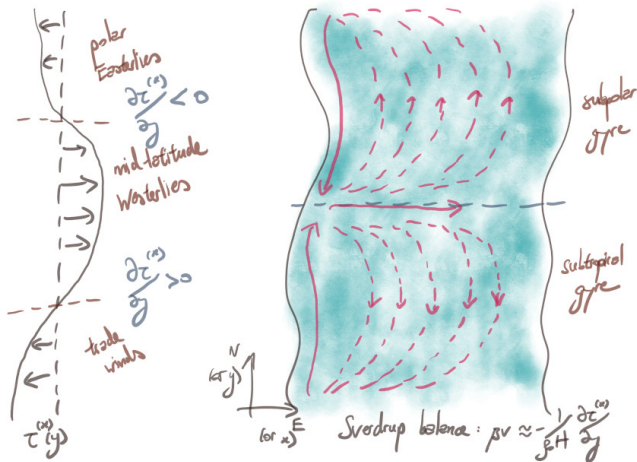 polar
Easterlies
∂τ^(x)/∂y < 0
mid-latitude
Westerlies
∂τ^(x)/∂y > 0
trade
winds
τ^(x)(y)
subpolar
gyre
subtropical
gyre
N
(or y)
E
(or x)
Sverdrup balance: βv ≈ -1/ρ₀H ∂τ^(x)/∂y